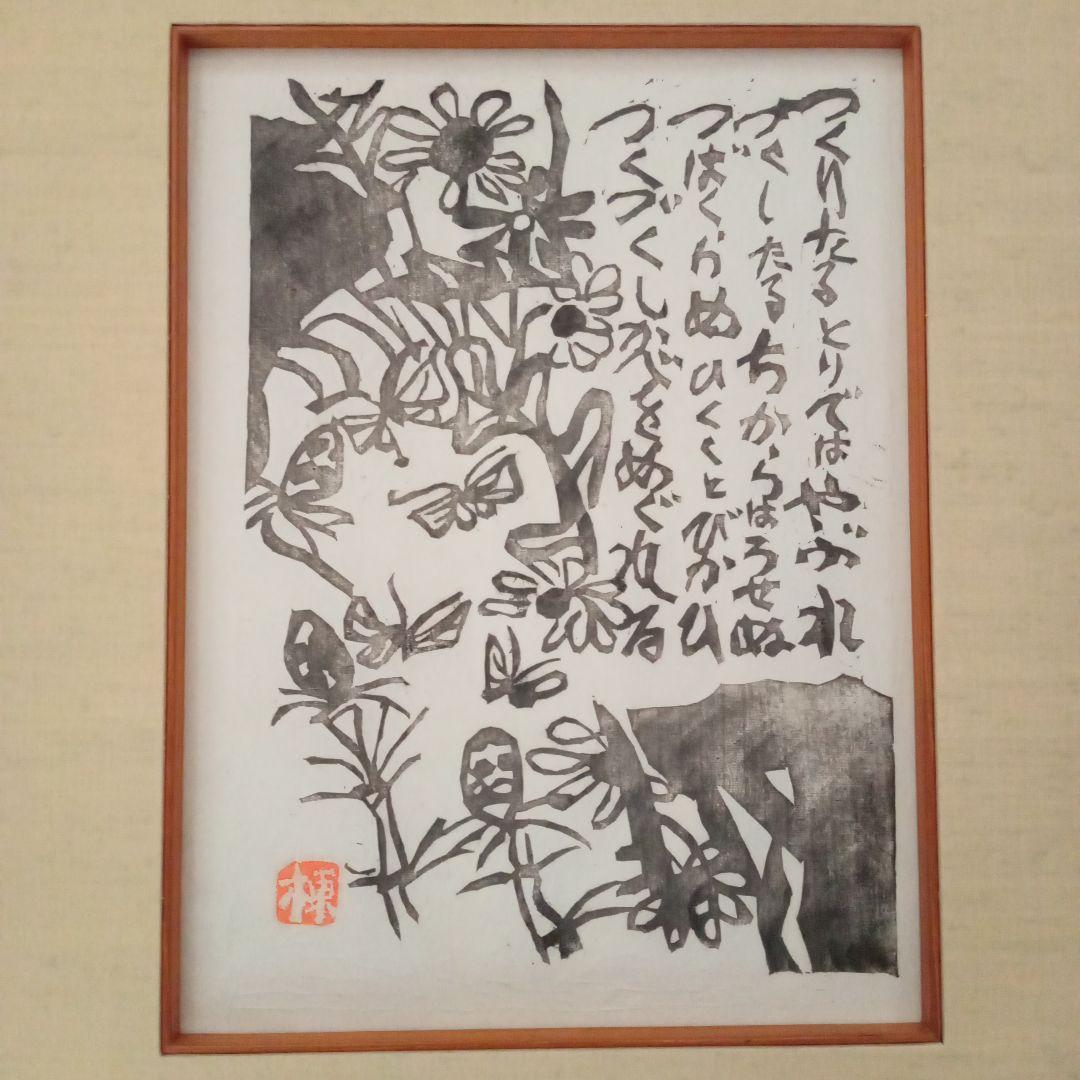 つくりたるとりではやぶれ
つくしたるちからはうせぬ
つばくらめひくくとびかひ
つくづくしをめぐれる
棟